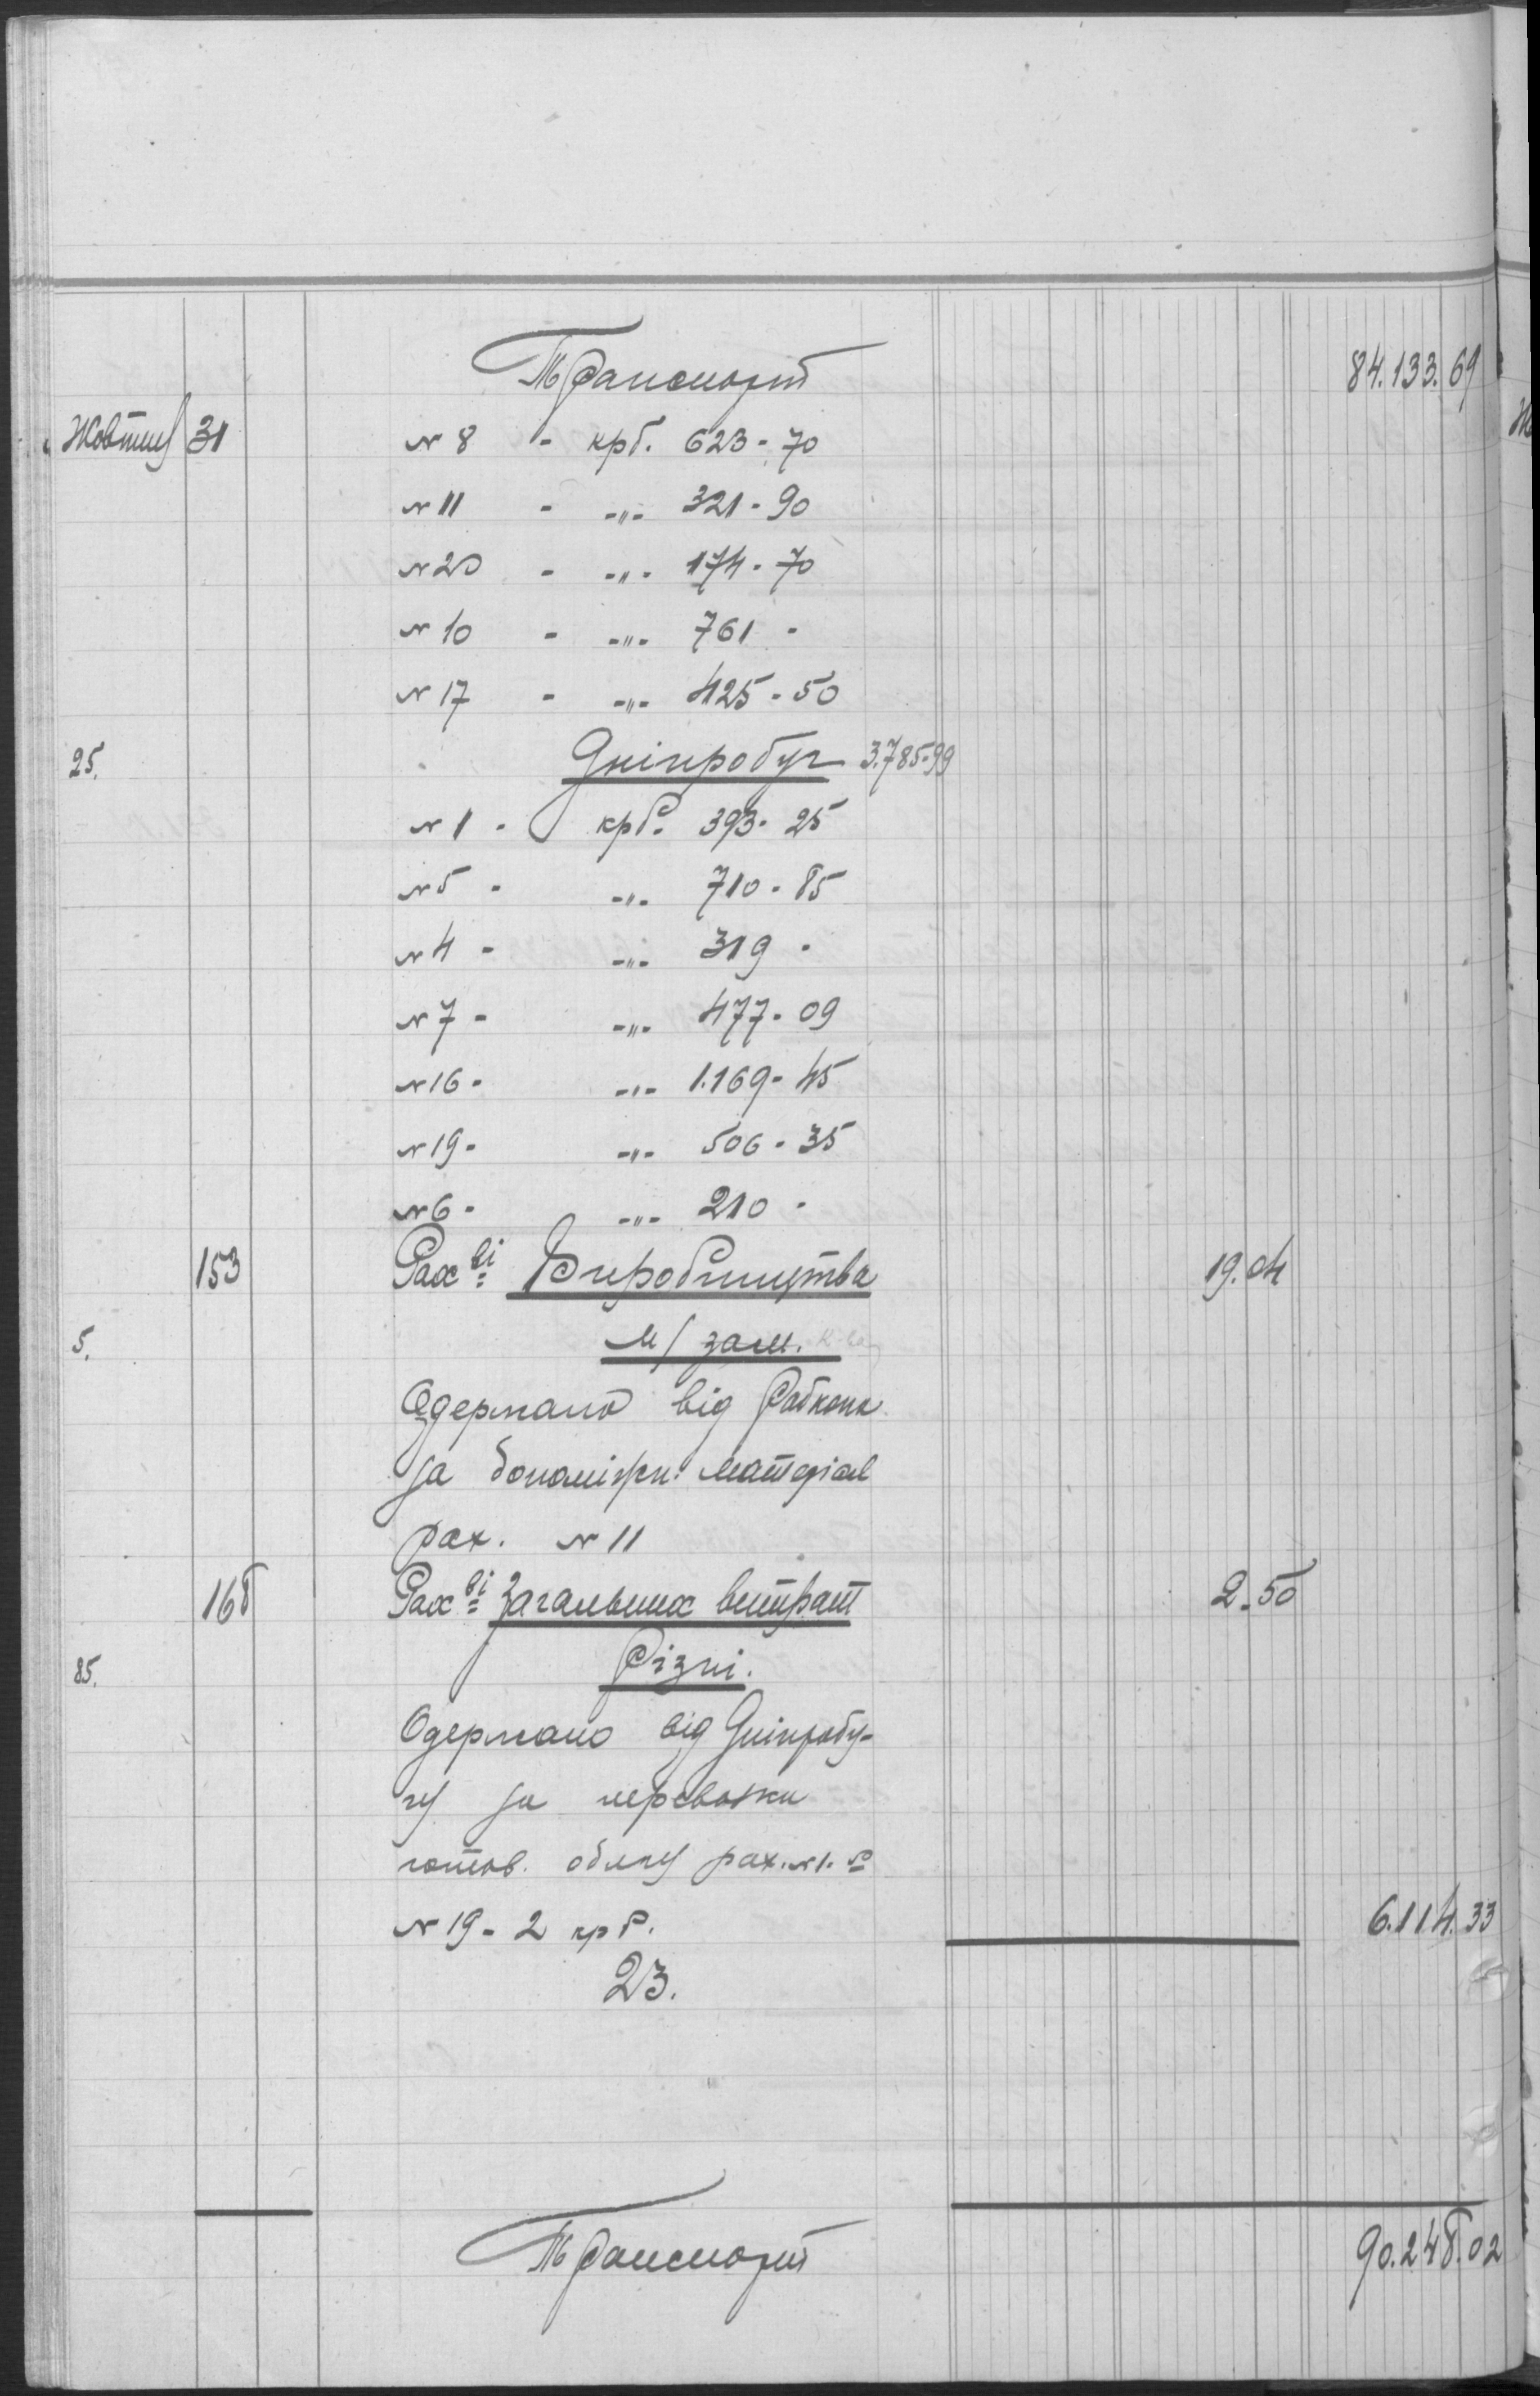 Транспорт 84.133.69
Жовтня 31 № 8 - крб. 623-70
№ 11 - -"- 321-90
№ 20 - -"- 174-70
№ 10 - -"- 761 -
№ 17 - -"- 425-50
25. Дніпробуг 3.785-99
№ 1 - крб. 393-25
№ 5 - -"- 710-85
№ 4 - -"- 319 -
№ 7 - -"- 477-09
№ 16 - -"- 1.169-45
№ 19 - -"- 506-35
№ 6 - -"- 210 -
153 Рахві Виробництва 19.04
5. М/зам.
Одержано від Рабкопа
за допоміжн. матеріал
рах. № 11
168 Рахві Загальних витрат 2-50
85. Різні.
Одержано від Дніпробу-
гу за перевозки
готов. обліку рах. №1-50
№ 19 - 2 крб. 6.114.33
23.
Транспорт 90.248.02